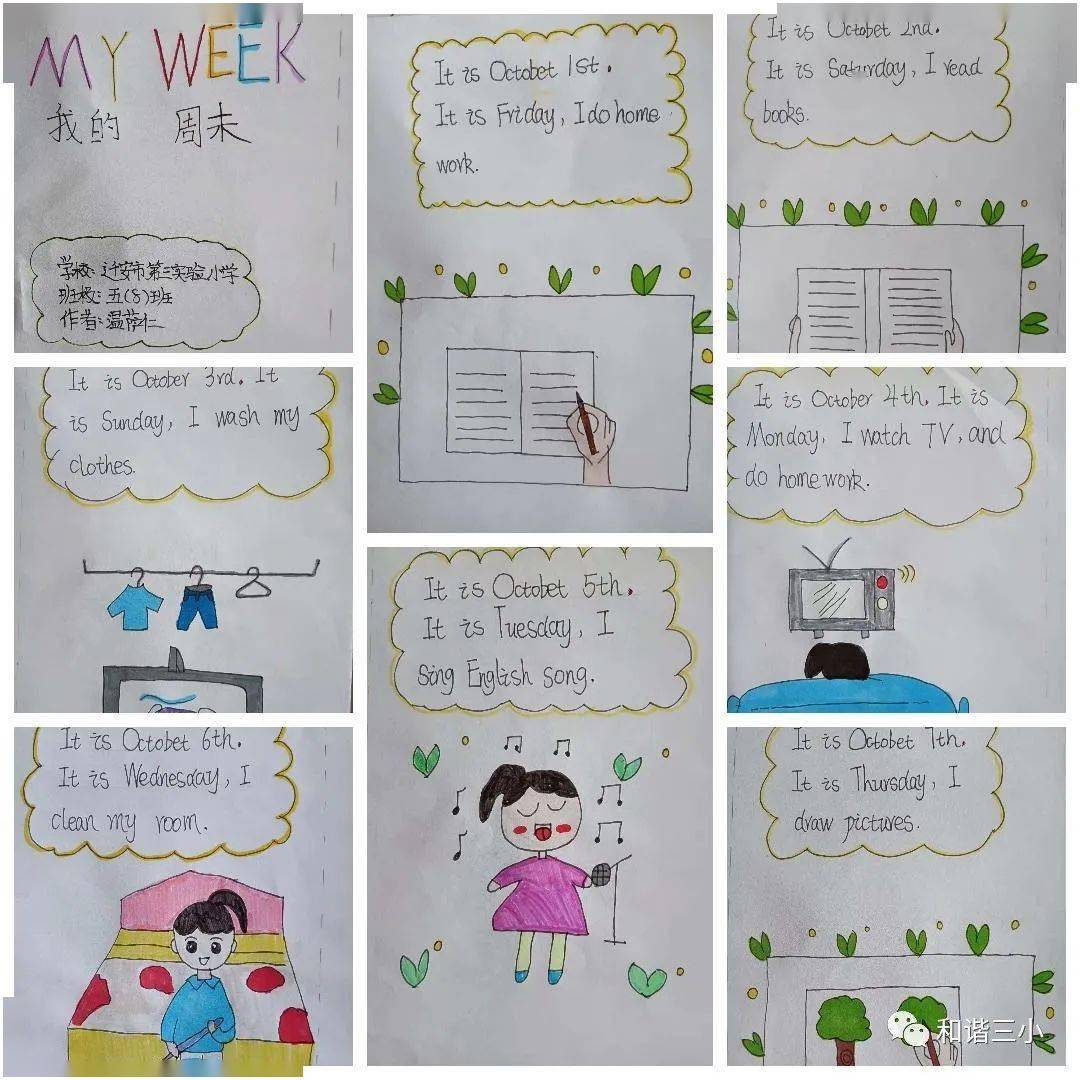 MY WEEK
我的 周末
学校：迁安市第三实验小学
班级：五(8)班
作者：温蕴仁
It is Octobet 1st.
It is Friday, I do home
work.
It is Octobet 2nd.
It is Saturday, I read
books.
It is October 3rd. It
is Sunday, I wash my
clothes.
It is October 4th. It is
Monday, I watch TV, and
do home work.
It is Octobet 5th.
It is Tuesday, I
sing English song.
It is Octobet 6th.
It is Wednesday, I
clean my room.
It is Octobet 7th.
It is Thursday, I
draw pictures.
和谐三小